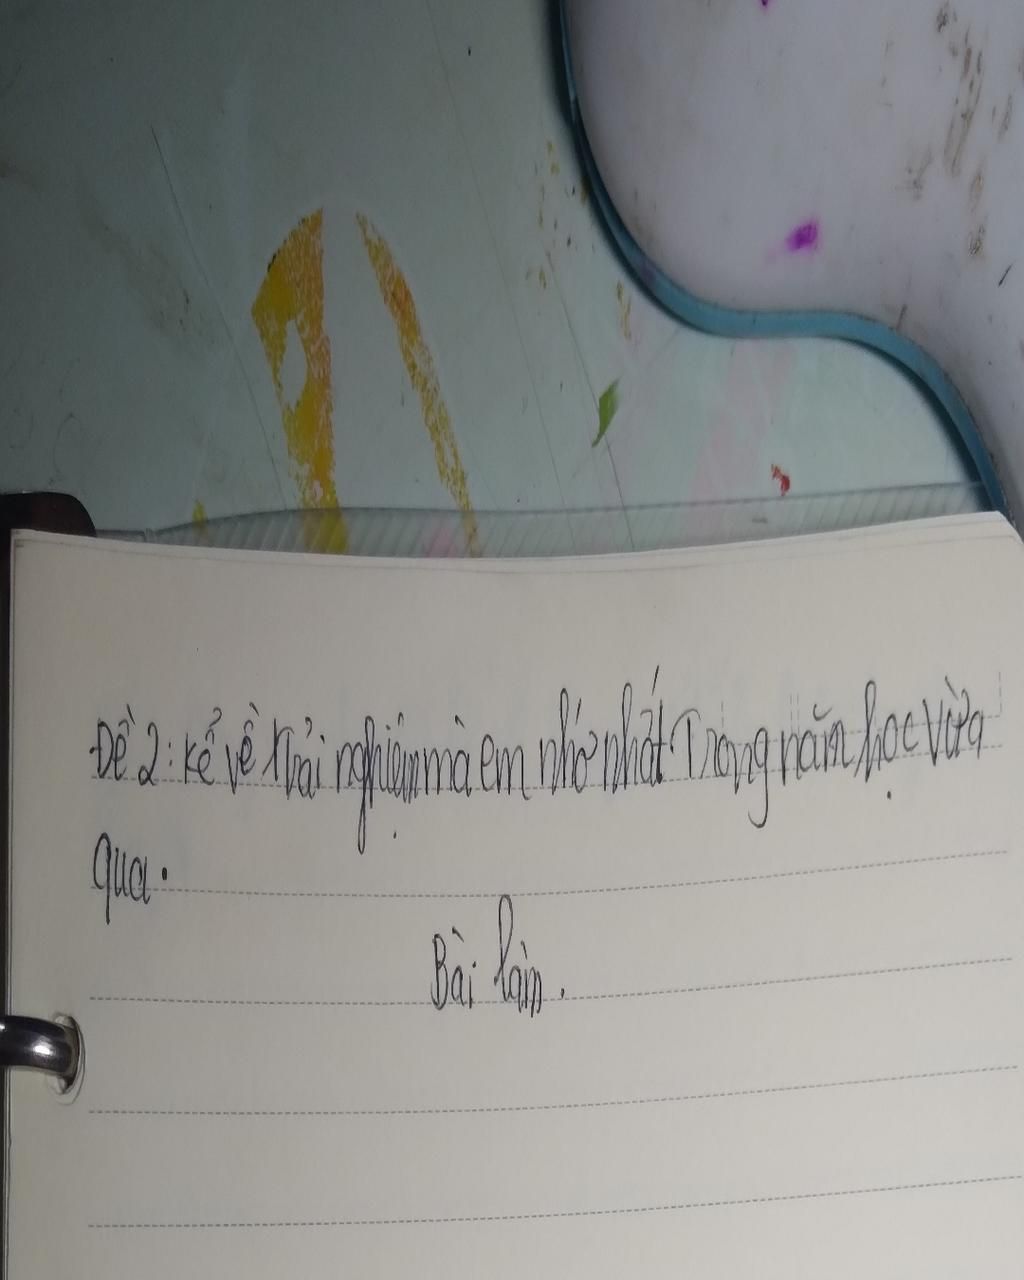 Đề 2: Kể về trải nghiệm mà em nhớ nhất Trong năm học vừa
qua.
Bài làm.